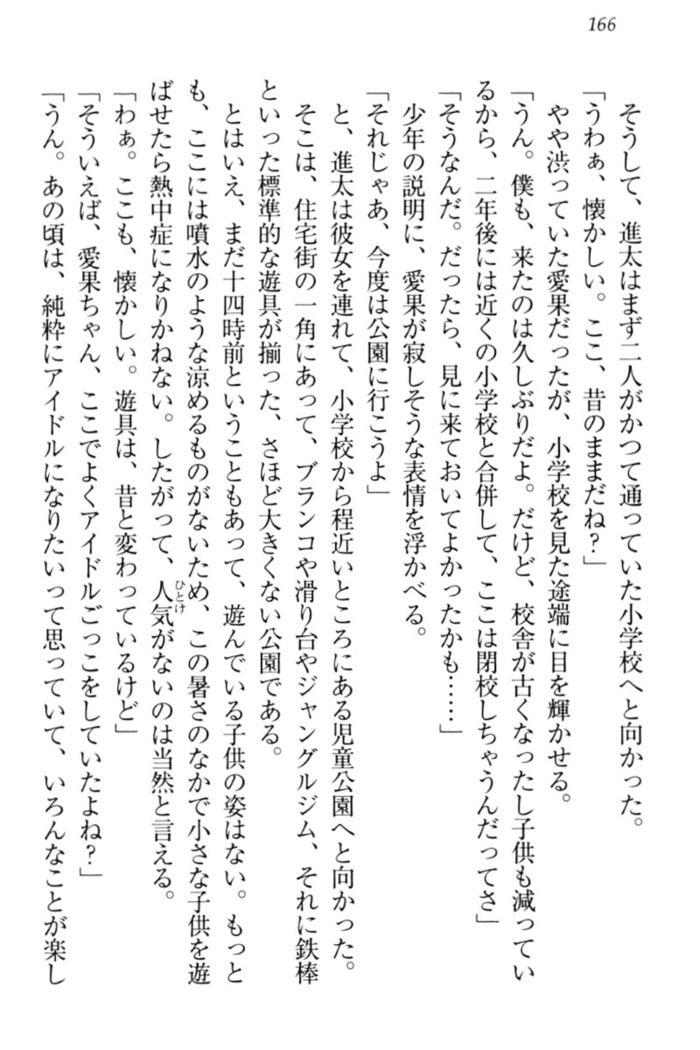 166
そうして、進太はまず二人がかつて通っていた小学校へと向かった。
「うわぁ、懐かしい。ここ、昔のままだね？」
やや渋っていた愛果だったが、小学校を見た途端に目を輝かせる。
「うん。僕も、来たのは久しぶりだよ。だけど、校舎が古くなったし子供も減ってい
るから、二年後には近くの小学校と合併して、ここは閉校しちゃうんだってさ」
「そうなんだ。だったら、見に来ておいてよかったかも……」
少年の説明に、愛果が寂しそうな表情を浮かべる。
「それじゃあ、今度は公園に行こうよ」
と、進太は彼女を連れて、小学校から程近いところにある児童公園へと向かった。
そこは、住宅街の一角にあって、ブランコや滑り台やジャングルジム、それに鉄棒
といった標準的な遊具が揃った、さほど大きくない公園である。
とはいえ、まだ十四時前ということもあって、遊んでいる子供の姿はない。もっと
も、ここには噴水のような涼めるものがないため、この暑さのなかで小さな子供を遊
ばせたら熱中症になりかねない。したがって、人気がないのは当然と言える。
ひとけ
「わぁ。ここも、懐かしい。遊具は、昔と変わっているけど」
「そういえば、愛果ちゃん、ここでよくアイドルごっこをしていたよね？」
「うん。あの頃は、純粋にアイドルになりたいって思っていて、いろんなことが楽し